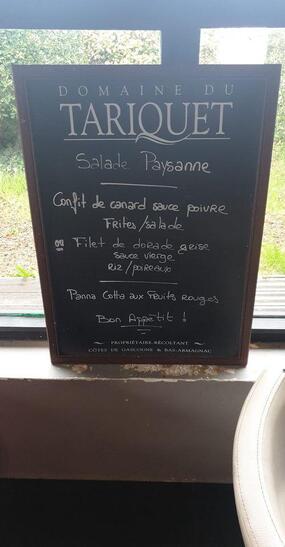 DOMAINE DU
TARIQUET
Salade Paysanne
Confit de canard sauce poivre
Frites/salade
ou Filet de dorade grise
sauce vierge
Riz/poireaux
Panna Cotta aux Fruits rouges
Bon Appétit !
PROPRIÉTAIRE-RÉCOLTANT
CÔTES DE GASCOGNE & BAS-ARMAGNAC